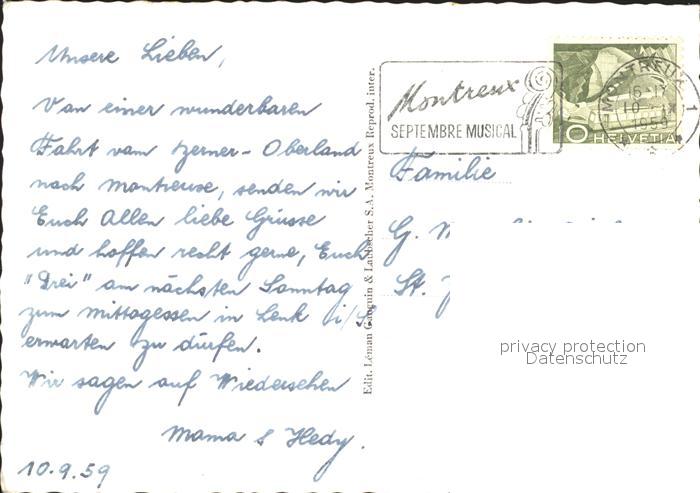 Unsere Lieben,
Von einer wunderbaren
Fahrt vom Berner-Oberland
nach Montreuse, senden wir
Euch Allen liebe Grüsse
und hoffen recht gerne, Euch
"Drei" am nächsten Sonntag
zum Mittagessen in Lenk i/S.
erwarten zu dürfen.
Wir sagen auf Wiedersehen
Mama & Hedy.
10.9.59
Edit. Léman Gauguin & Laubscher S.A. Montreux Reprod. inter.
Montreux
SEPTEMBRE MUSICAL
MONTREUX 1
10 HELVETIA
Familie
G. M
St.
privacy protection
Datenschutz